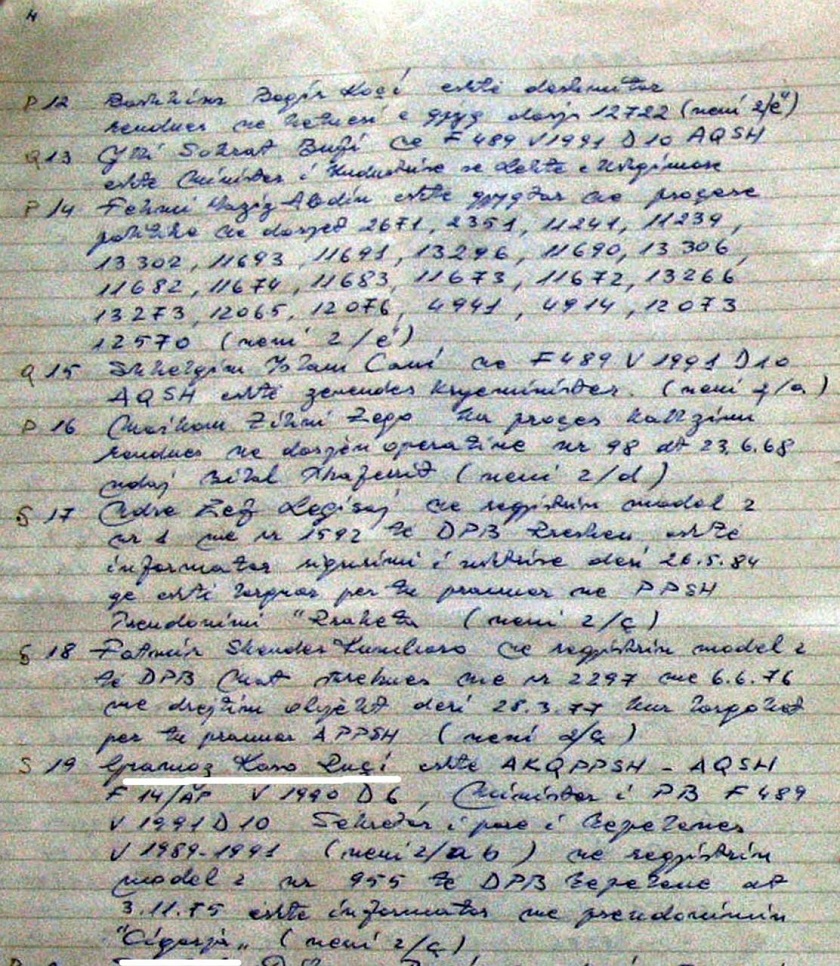 4
P 12 Bashkim Koçi është dëshmitar
rendues ne hetuesi e gjyq dosje 12722 (neni 2/ë)
Q 13 Ylli Sokrat Bufi ne F 489 V 1991 D 10 AQSH
eshte Minister i Industrise
P 14 Fehmi Abdiu eshte gjygtar ne procese
politike ne dosjet 2671, 2351, 11241, 11239,
13302, 11693, 11691, 13296, 11690, 13306,
11682, 11674, 11683, 11673, 11672, 13266
13273, 12065, 12076, 4941, 4914, 12073
12570 (neni 2/e)
Q 15 Shkelqim Cani ne F 489 V 1991 D 10
AQSH eshte zevendes kryeminister. (neni 2/a)
P 16 Zihni Zego ka proces kallzimi
rendues ne dosjen operative nr 98 dt 23.6.68
ndaj Bilal Xhaferrit (neni 2/d)
S 17 Ndre Zef Legisaj ne regjistrin model 2
nr 1 me nr 1592 te DPB eshte
informator sigurimi i deri 26.5.84
qe eshte larguar per tu pranuar ne PPSH
Pseudonimi "Raketa" (neni 2/ç)
S 18 Fatmir Skender Kumbaro ne regjistrin model 2
te DPB Mat me nr 2297 me 6.6.76
me drejtim objekt deri 28.3.77 kur largohet
per tu pranuar APPSH (neni 2/ç)
S 19 Gramoz Ruçi eshte AKQPPSH - AQSH
F 14/AP V 1990 D 6, Minister i PB F 489
V 1991 D 10 Sekretar i pare i Tepelenes
V 1989-1991 (neni 2/a b) ne regjistrin
model 2 nr 955 te DPB Tepelene dt
3.11.75 eshte informator me pseudonimin
"Cigarja" (neni 2/ç)